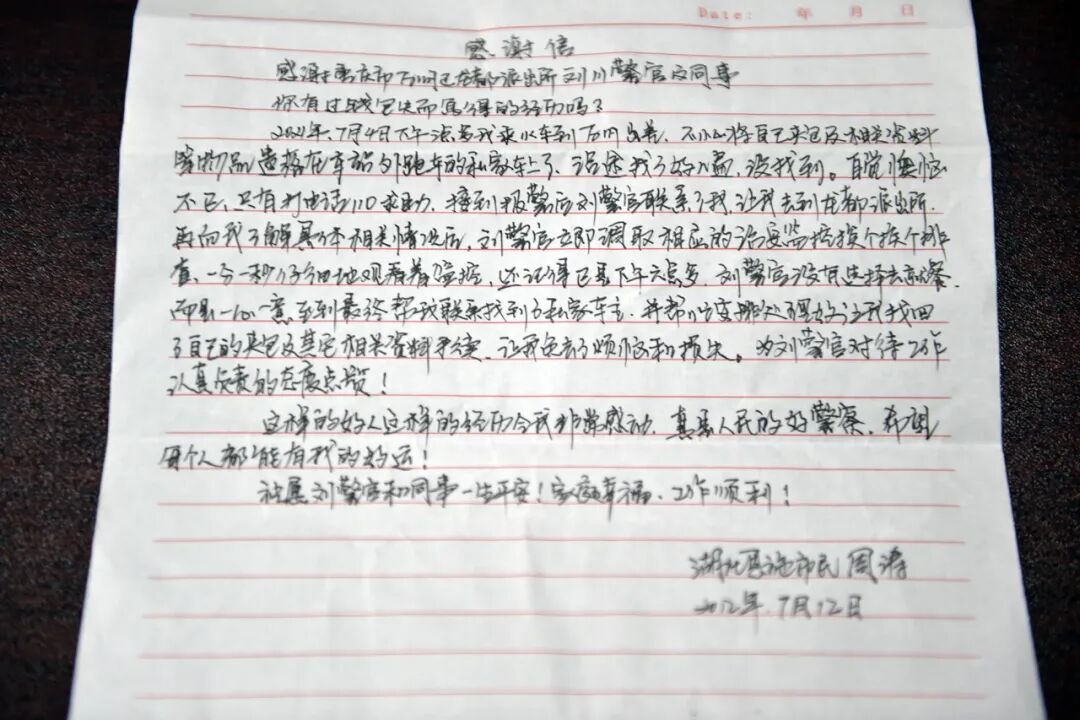 Date: 年 月 日
感谢信
感谢重庆市万州区龙都派出所刘川警官及同事
你有过钱包失而复得的经历吗?
2021年、7月4日下午 我乘火车到万州出差、不小心将自己夹包及相关资料
等物品遗落在车站外跑车的私家车上了、沿途找了好几圈,没找到。自觉懊恼
不已,只有打电话110求助,接到报警后刘警官联系了我,让我去到龙都派出所.
再向我了解具体相关情况后,刘警官立即调取相应的治安监控挨个挨个排
查、一分一秒仔仔细地观看着监控,还记得已是下午六点多,刘警官没有选择去就餐.
而是一心一意,直到最终帮我联系找到了私家车主.并帮 安排处理好让我找回
了自己的夹包及其它相关资料手续,让我免去了烦恼和损失。为刘警官对待工作
认真负责的态度点赞!
这样的好人这样的经历令我非常感动,真是人民的好警察,希望
每个人都能有我的好运!
祝愿刘警官和同事一生平安!家庭幸福、工作顺利!
湖北恩施市民 周涛
2012年.7月12日